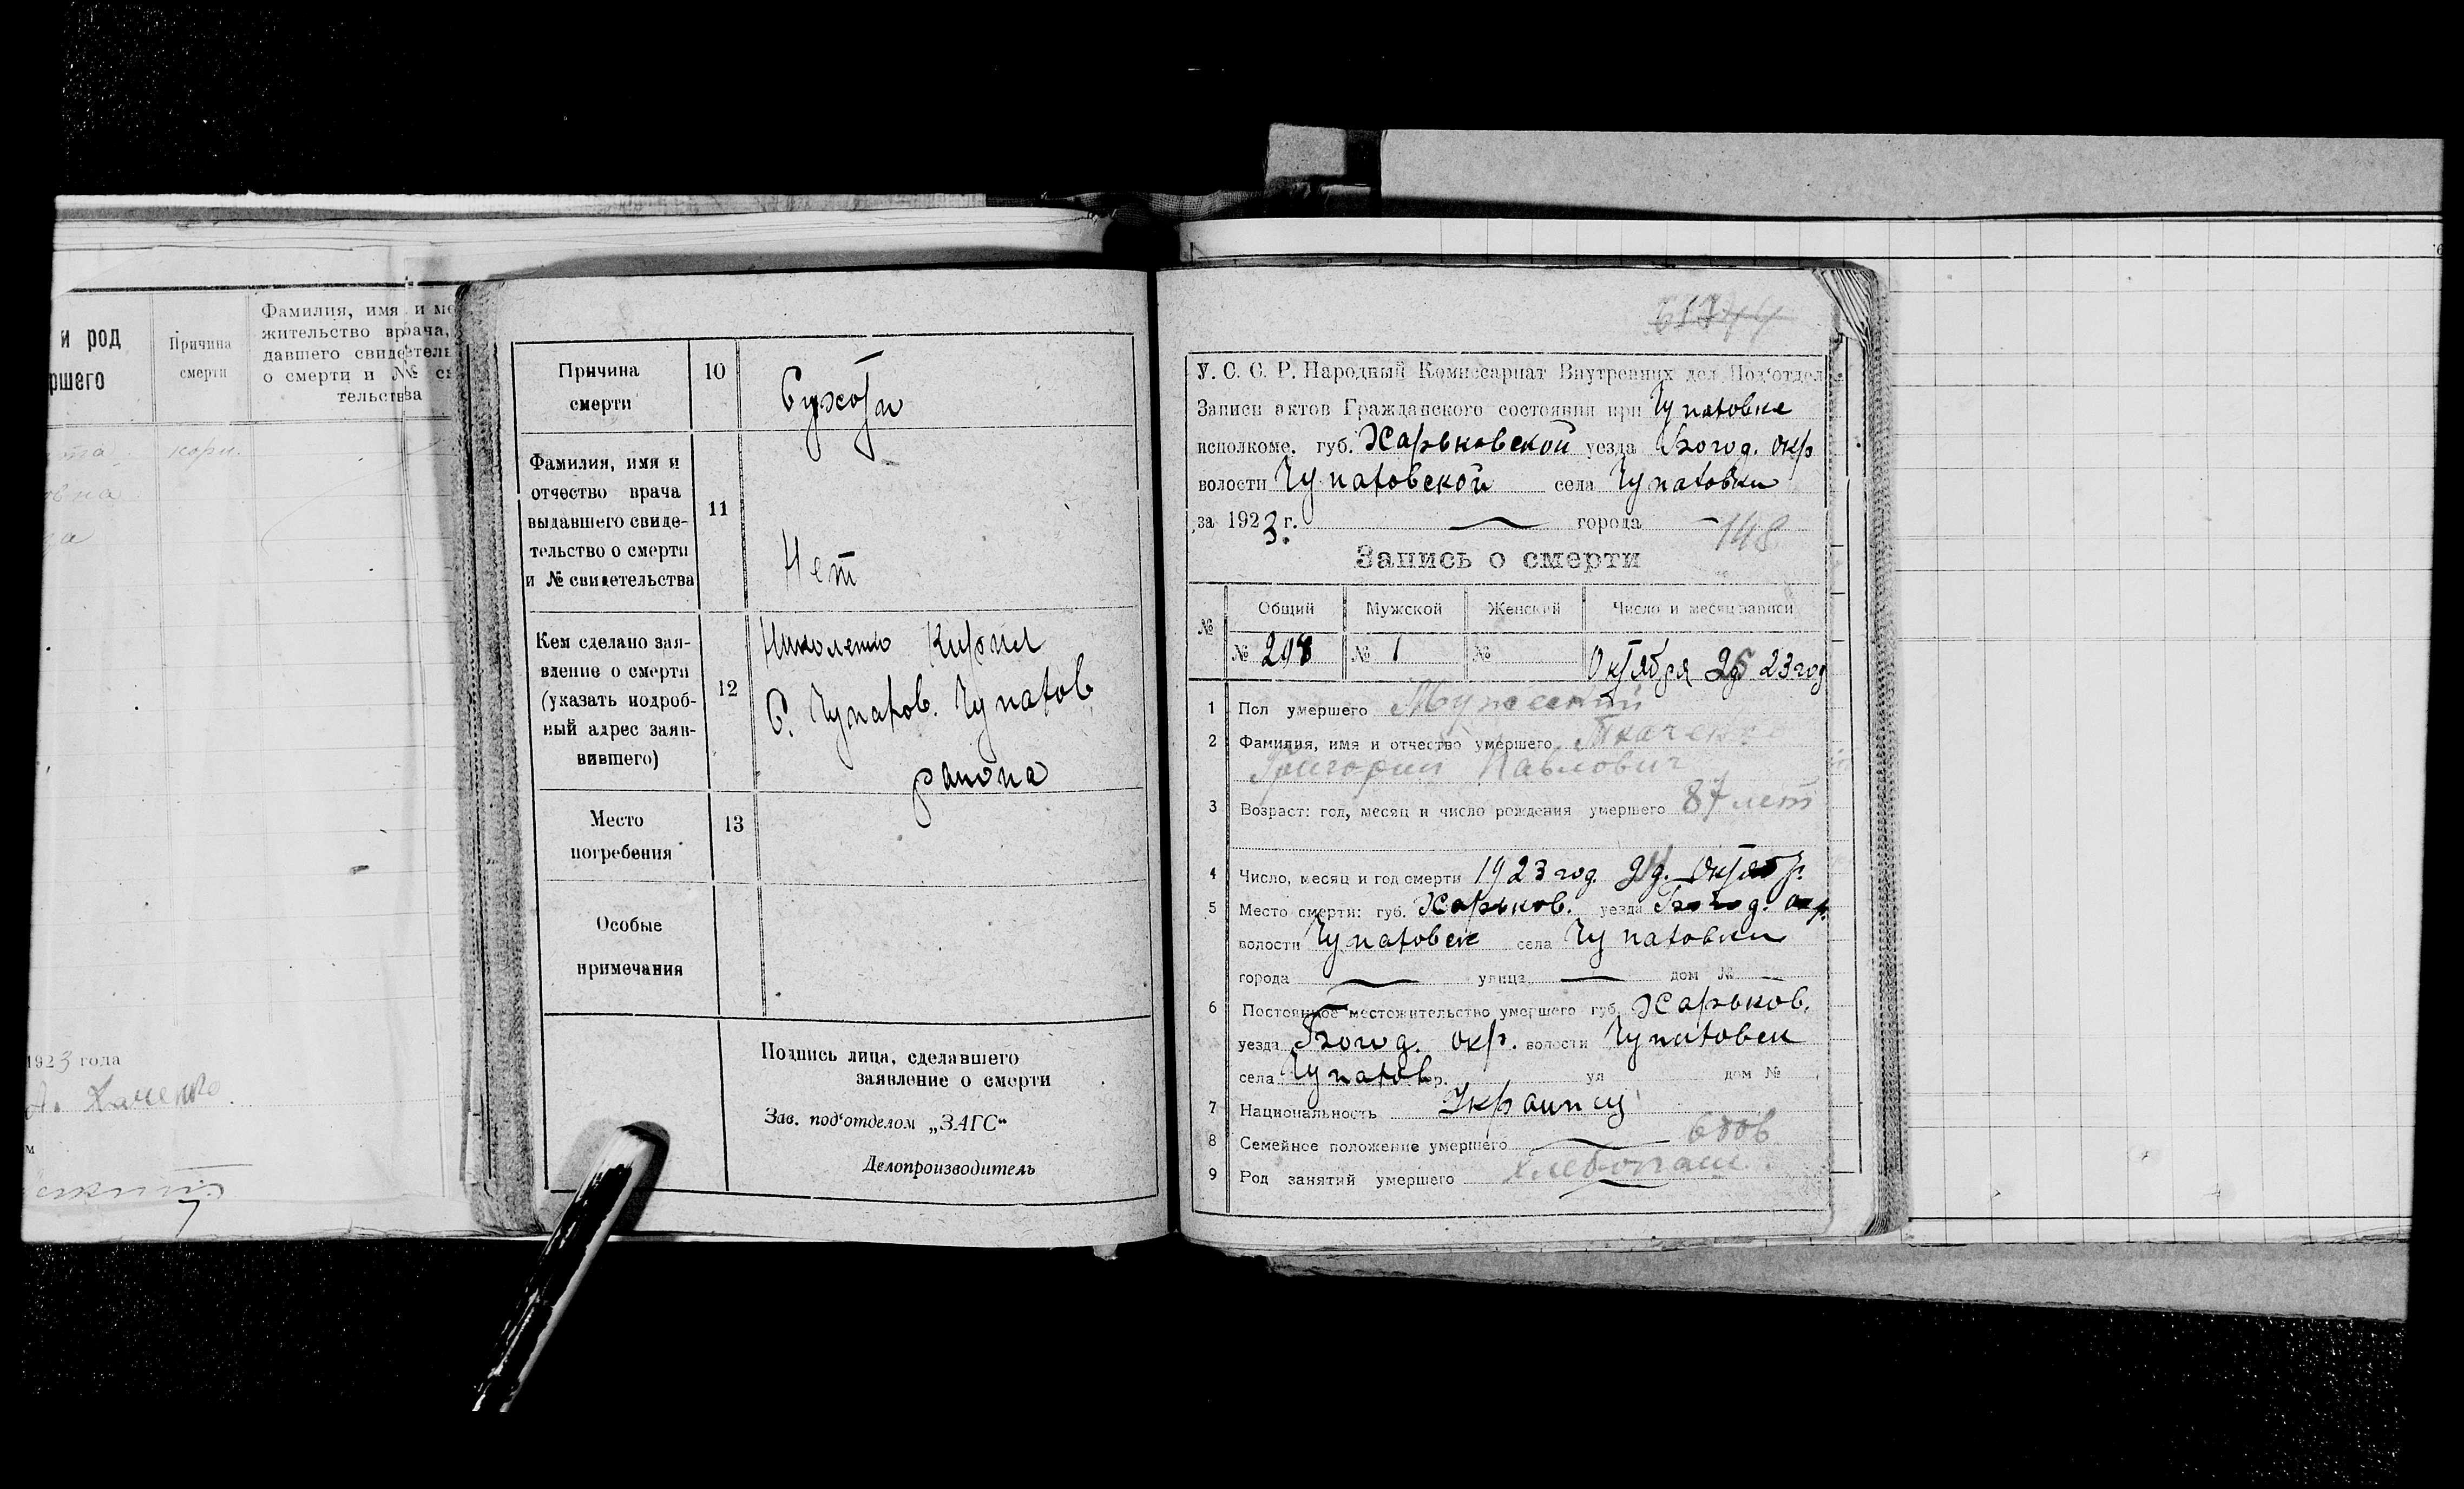 и род
ршего
Причина
смерти
Фамилия, имя и ме
жительство врача,
давшего свидетель
о смерти и №№ св
тельства
1923 года
Причина
смерти
10
Сухоты
Фамилия, имя и
отчество врача
выдавшего свиде-
тельство о смерти
и № свидетельства
11
Нет
Кем сделано зая-
вление о смерти
(указать подроб-
ный адрес заяв-
вившего)
12
Николенко Кирил
С. Чупахов. Чупахов
раиона
Место
погребения
13
Особые
примечания
Подпись лица, сделавшего
заявление о смерти
Зав. под‘отделом „ЗАГС“
Делопроизводитель
У. С. С. Р. Народный Комиссариат Внутренних дел Под‘отдел
Записи актов Гражданского состояния при
исполкоме. губ. Харьковской уезда Богод. окр
волости Чупаховской села Чупаховки
за 1923 г. города
148
Запись о смерти
№ Общий Мужской Женский Число и месяц записи
№ 298 № 1 № Октября 23 год
1 Пол умершего Мужеский
2 Фамилия, имя и отчество умершего Ткаченко
Григорий Павлович
3 Возраст: год, месяц и число рождения умершего 87 лет
4 Число, месяц и год смерти 1923 год
5 Место смерти: губ. Харьков. уезда Богод. окр.
волости села Чупаховки
города улица дом №
6 Постоянное местожительство умершего губ. Харьков.
уезда Богод. окр. волости
села Чупахов гор. ул дом №
7 Национальность Украинец
8 Семейное положение умершего вдов
9 Род занятий умершего хлебопаш.